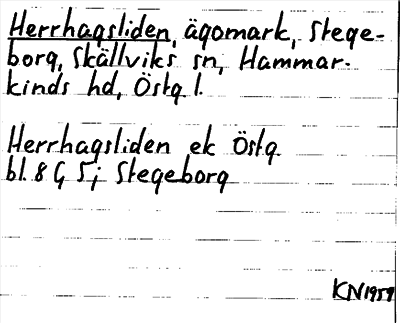 Herrhagsliden, ägomark, Stege-
borg, Skällviks sn, Hammar-
kinds hd, Östg l.
Herrhagsliden ek Östg.
bl. 8 G 5 j Stegeborg
KN 1959